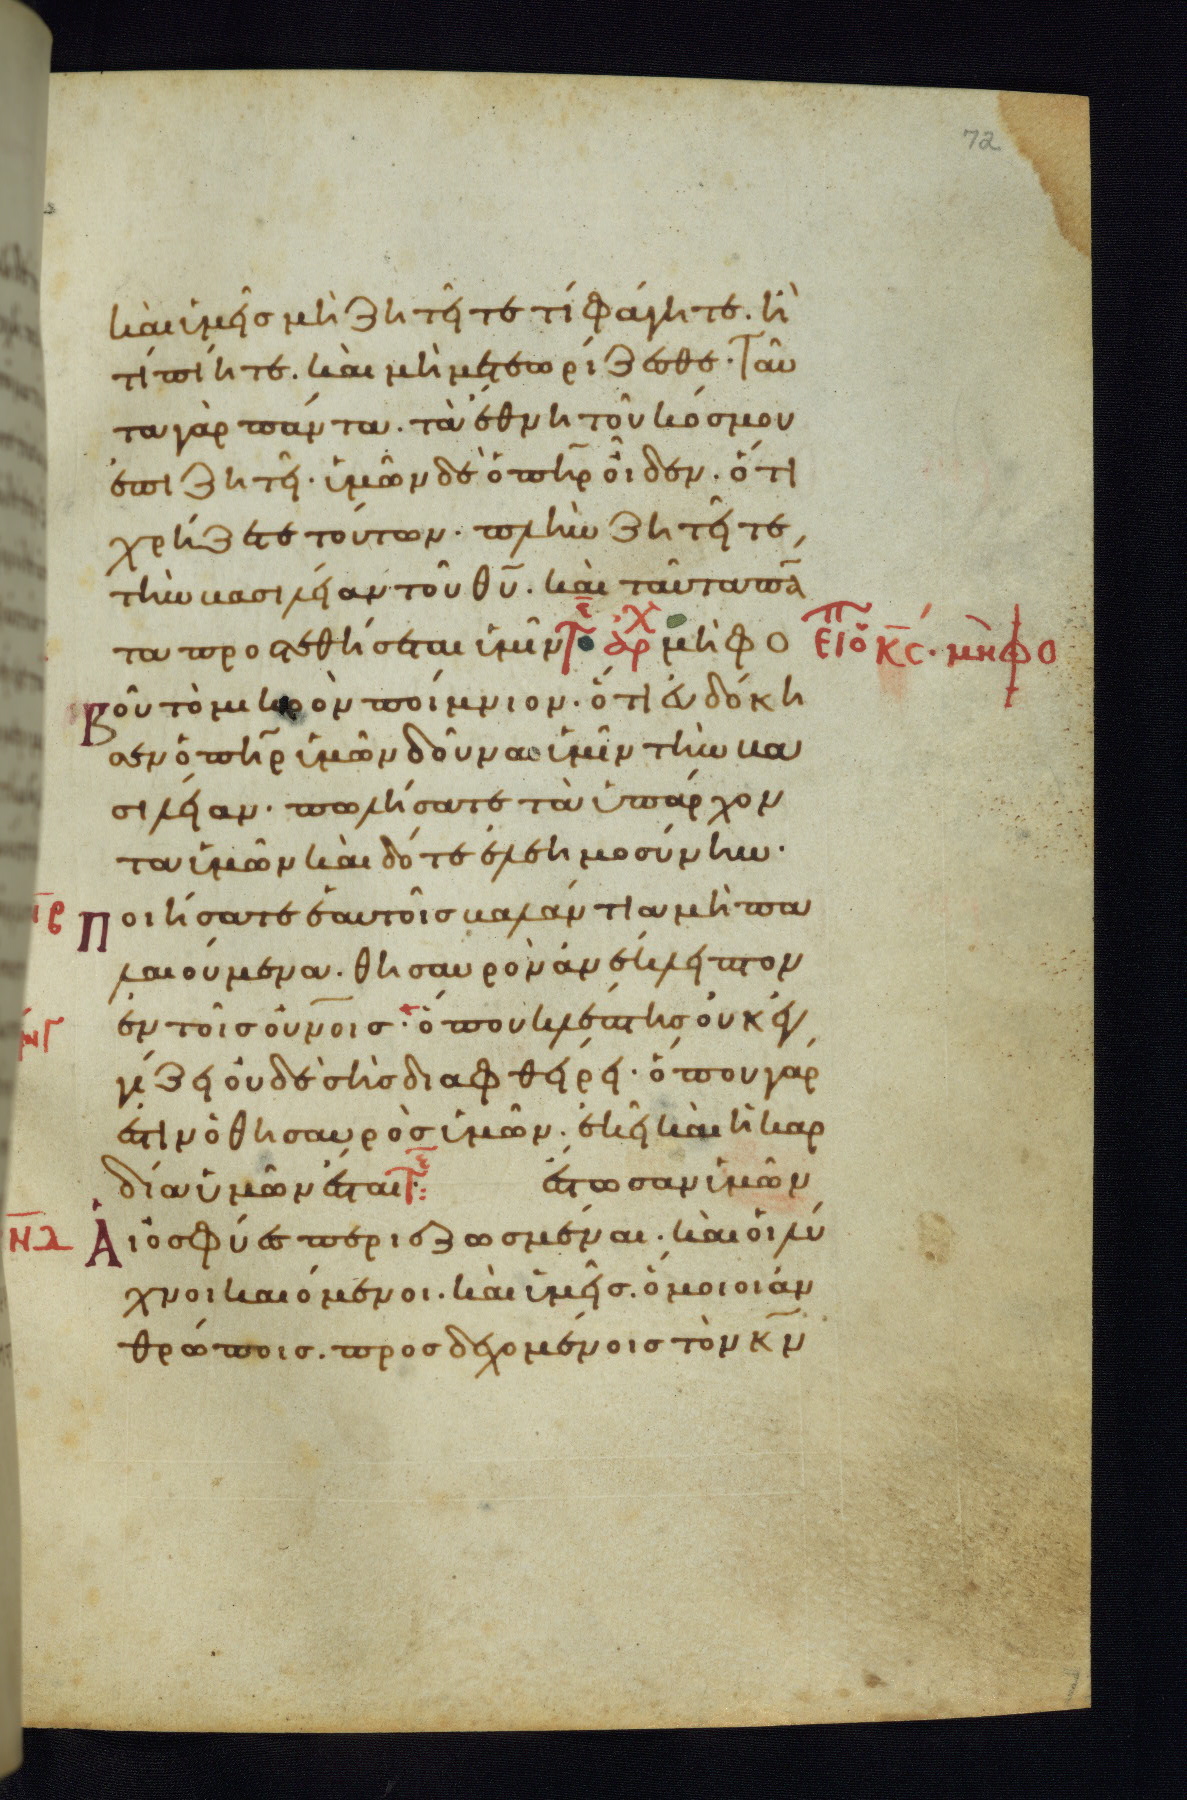 72
καὶ ὑμεῖς μὴ ζητεῖτε τί φάγητε. ἢ
τί πίητε. καὶ μὴ μετεωρίζεσθε. Ταῦ
τα γὰρ πάντα. τὰ ἔθνη τοῦ κόσμου
ἐπιζητεῖ. ὑμῶν δὲ ὁ π̅η̅ρ οἶδεν. ὅτι
χρήζετε τούτων. πλὴν ζητεῖτε,
τὴν βασιλείαν τοῦ θ̅υ̅. καὶ ταῦτα πά̅
τα προστεθήσεται ὑμῖν ἀρχ μὴ φο εἶπ ὁ κ̅ς̅. μὴ φο
βοῦ τὸ μικρὸν ποίμνιον. ὅτι εὐδόκη
σεν ὁ π̅η̅ρ ὑμῶν δοῦναι ὑμῖν τὴν βα
σιλείαν. πωλήσατε τὰ ὑπάρχον
τα ὑμῶν καὶ δότε ἐλεημοσύνην.
Ποιήσατε ἑαυτοῖς βαλάντια μὴ πα
λαιούμενα. θησαυρὸν ἀνέκλειπτον
ἐν τοῖς οὐ̅ν̅οις. ὅπου κλέπτης οὐκ ἐγ
γίζει οὐδὲ σὴς διαφθείρει. ὅπου γάρ
ἐστιν ὁ θησαυρὸς ὑμῶν. ἐκεῖ καὶ ἡ καρ
δία ὑμῶν ἔσται. ἔστωσαν ὑμῶν
Αἱ ὀσφύες περιεζωσμέναι. καὶ οἱ λύ
χνοι καιόμενοι. καὶ ὑμεῖς. ὅμοιοι ἀν
θρώποις. προσδεχομένοις τὸν κ̅ν̅